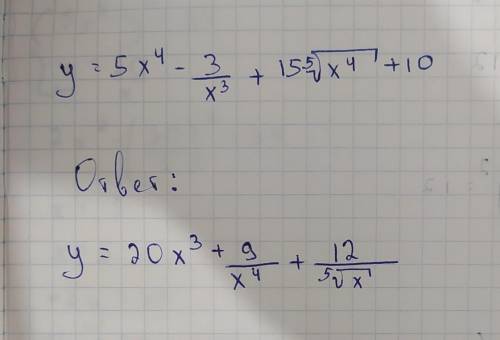 y = 5x⁴ - 3/x³ + 15⁵√x⁴ + 10
Ответ:
y = 20x³ + 9/x⁴ + 12/⁵√x